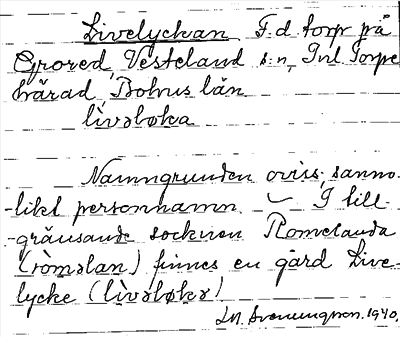 Livelyckan F.d torp på
Grored Västerlund s:n, Inl. Torpe
härad Bohus län
lìvələka
Namngrunden oviss, sanno-
-likt personnamn. ~ I till-
-gränsande socknen Romelanda
(ròmələn) finnes en gård Live-
lycke (lìvələkə)
LM. Svenungsson. 1940.